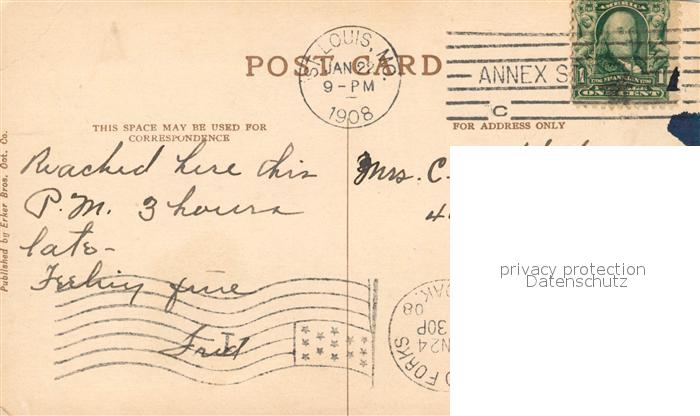 ST. LOUIS, MO.
JAN 22
9-PM
1908
POST CARD
ANNEX S
C
AMERIC
1 FRANKLIN 1
ONE CENT
THIS SPACE MAY BE USED FOR
CORRESPONDENCE
FOR ADDRESS ONLY
Reached here this
P.M. 3 hours
late-
Feeling fine
Fred
Mrs. C.
4
FORKS
DAK.
N24
30P
08
Published by Erker Bros. Opt. Co.
privacy protection
Datenschutz